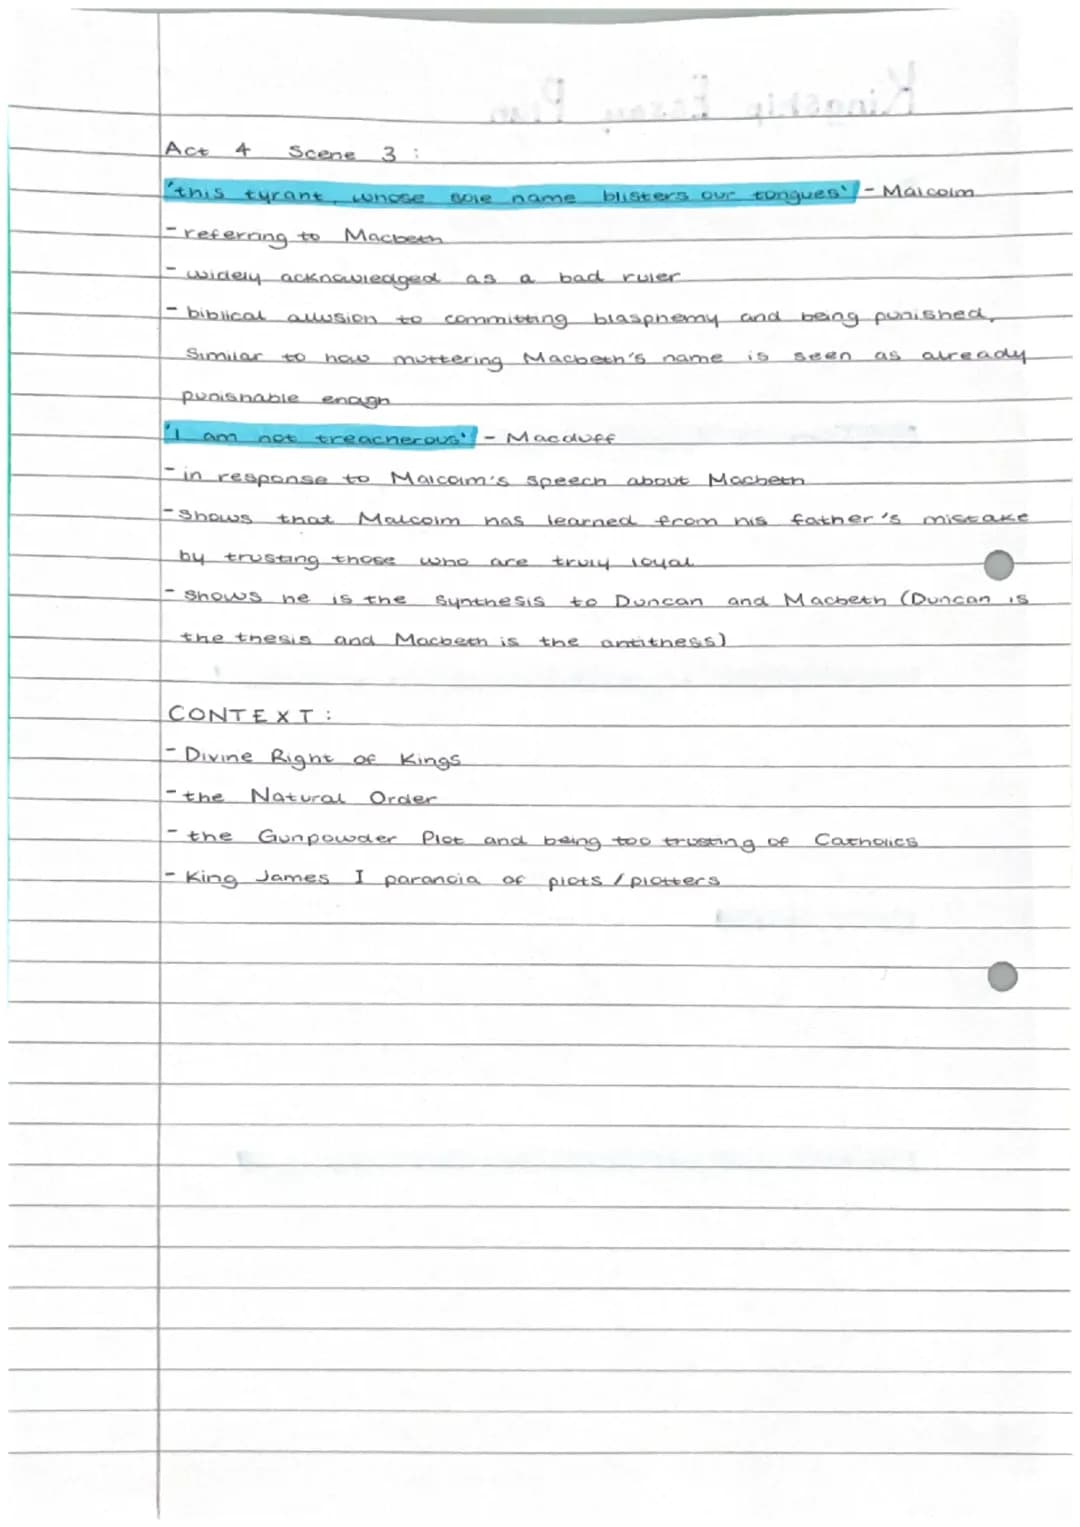 Act 4 Scene 3 :
'this tyrant, whose sole name blisters our tongues' - Malcolm
- referring to Macbeth
- widely acknowledged as a bad ruler
- biblical allusion to committing blasphemy and being punished,
Similar to how muttering Macbeth's name is seen as already
punishable enogh
'I am not treacherous' - Macduff
- in response to Malcolm's speech about Macbeth
- Shows that Malcolm has learned from his father's mistake
by trusting those who are truly loyal
- Shows he is the synthesis to Duncan and Macbeth (Duncan is
the thesis and Macbeth is the antithess)
CONTEXT:
- Divine Right of Kings
- the Natural Order
- the Gunpowder Plot and being too trusting of Catholics
- King James I paranoia of plots / plotters
Kingship Essay Plan